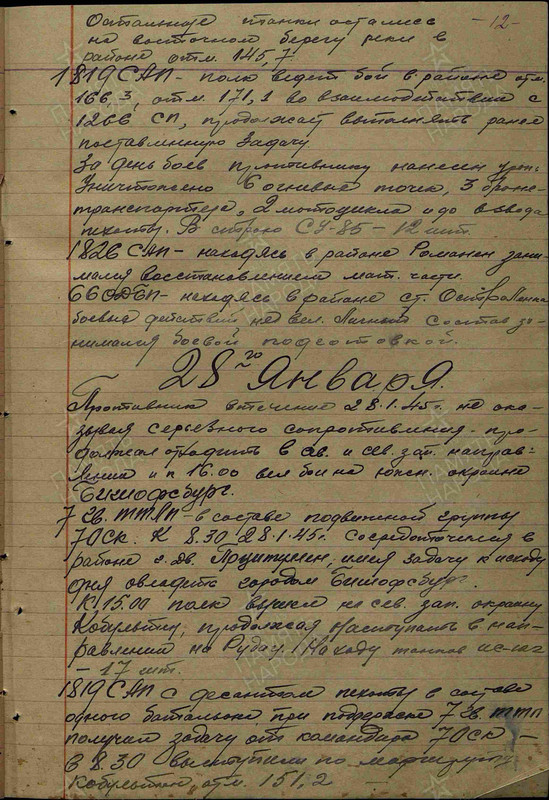 -12-
Остальные танки остались
на восточном берегу реки в
районе отм. 145,7
1819 САП - полк ведет бой в районе отм.
166,3, отм. 171,1 во взаимодействии с
1266 СП, продолжает выполнять ранее
поставленную задачу
За день боев противнику нанесен урон:
Уничтожено 6 огневых точек, 3 броне-
транспортера, 2 мотоцикла и до взвода
пехоты. В строю СУ-85 - 12 шт.
1826 САП - находясь в районе Романен зани-
мался восстановлением мат. части.
66 ОДБП - находясь в районе ст.
боевых действий не вел. Личный состав за-
нимался боевой подготовкой.
28го Января.
Противник в течение 28.1.45г. не ока-
зывая серьезного сопротивления - про-
должал отходить в св. и сев. зап. направ-
лении и к 16.00 вел бой на южн. окраине
Бишофсбург.
7 Гв. ТТПП - в составе подвижной группы
70СК. К 8.30 28.1.45г. сосредоточился в
районе г. дв. имея задачу к исходу
дня овладеть городом Бишофсбург.
К 15.00 полк вышел на сев. зап. окраину
Кобультен, продолжая наступать в нап-
равлении на Рудау. На ходу танков ис-122
- 17 шт.
1819 САП с десантом пехоты в составе
одного батальона при поддержке 7 Гв. ТТПП
получил задачу от командира 70СК -
в 8.30 выступили по маршруту
Кобультен, отм. 151,2 -